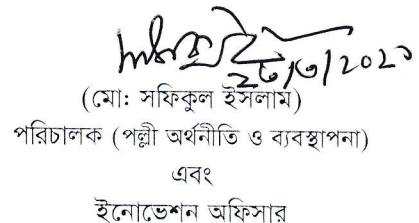 (মো: সফিকুল ইসলাম)
পরিচালক (পল্লী অর্থনীতি ও ব্যবস্থাপনা)
এবং
ইনোভেশন অফিসার